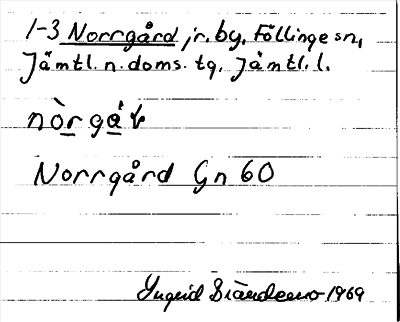 1-3 Norrgård, jr. by, Föllinge sn,
Jämtl. n. doms. tg, Jämtl. l.
Norrgård Gn 60
Ingrid 1969